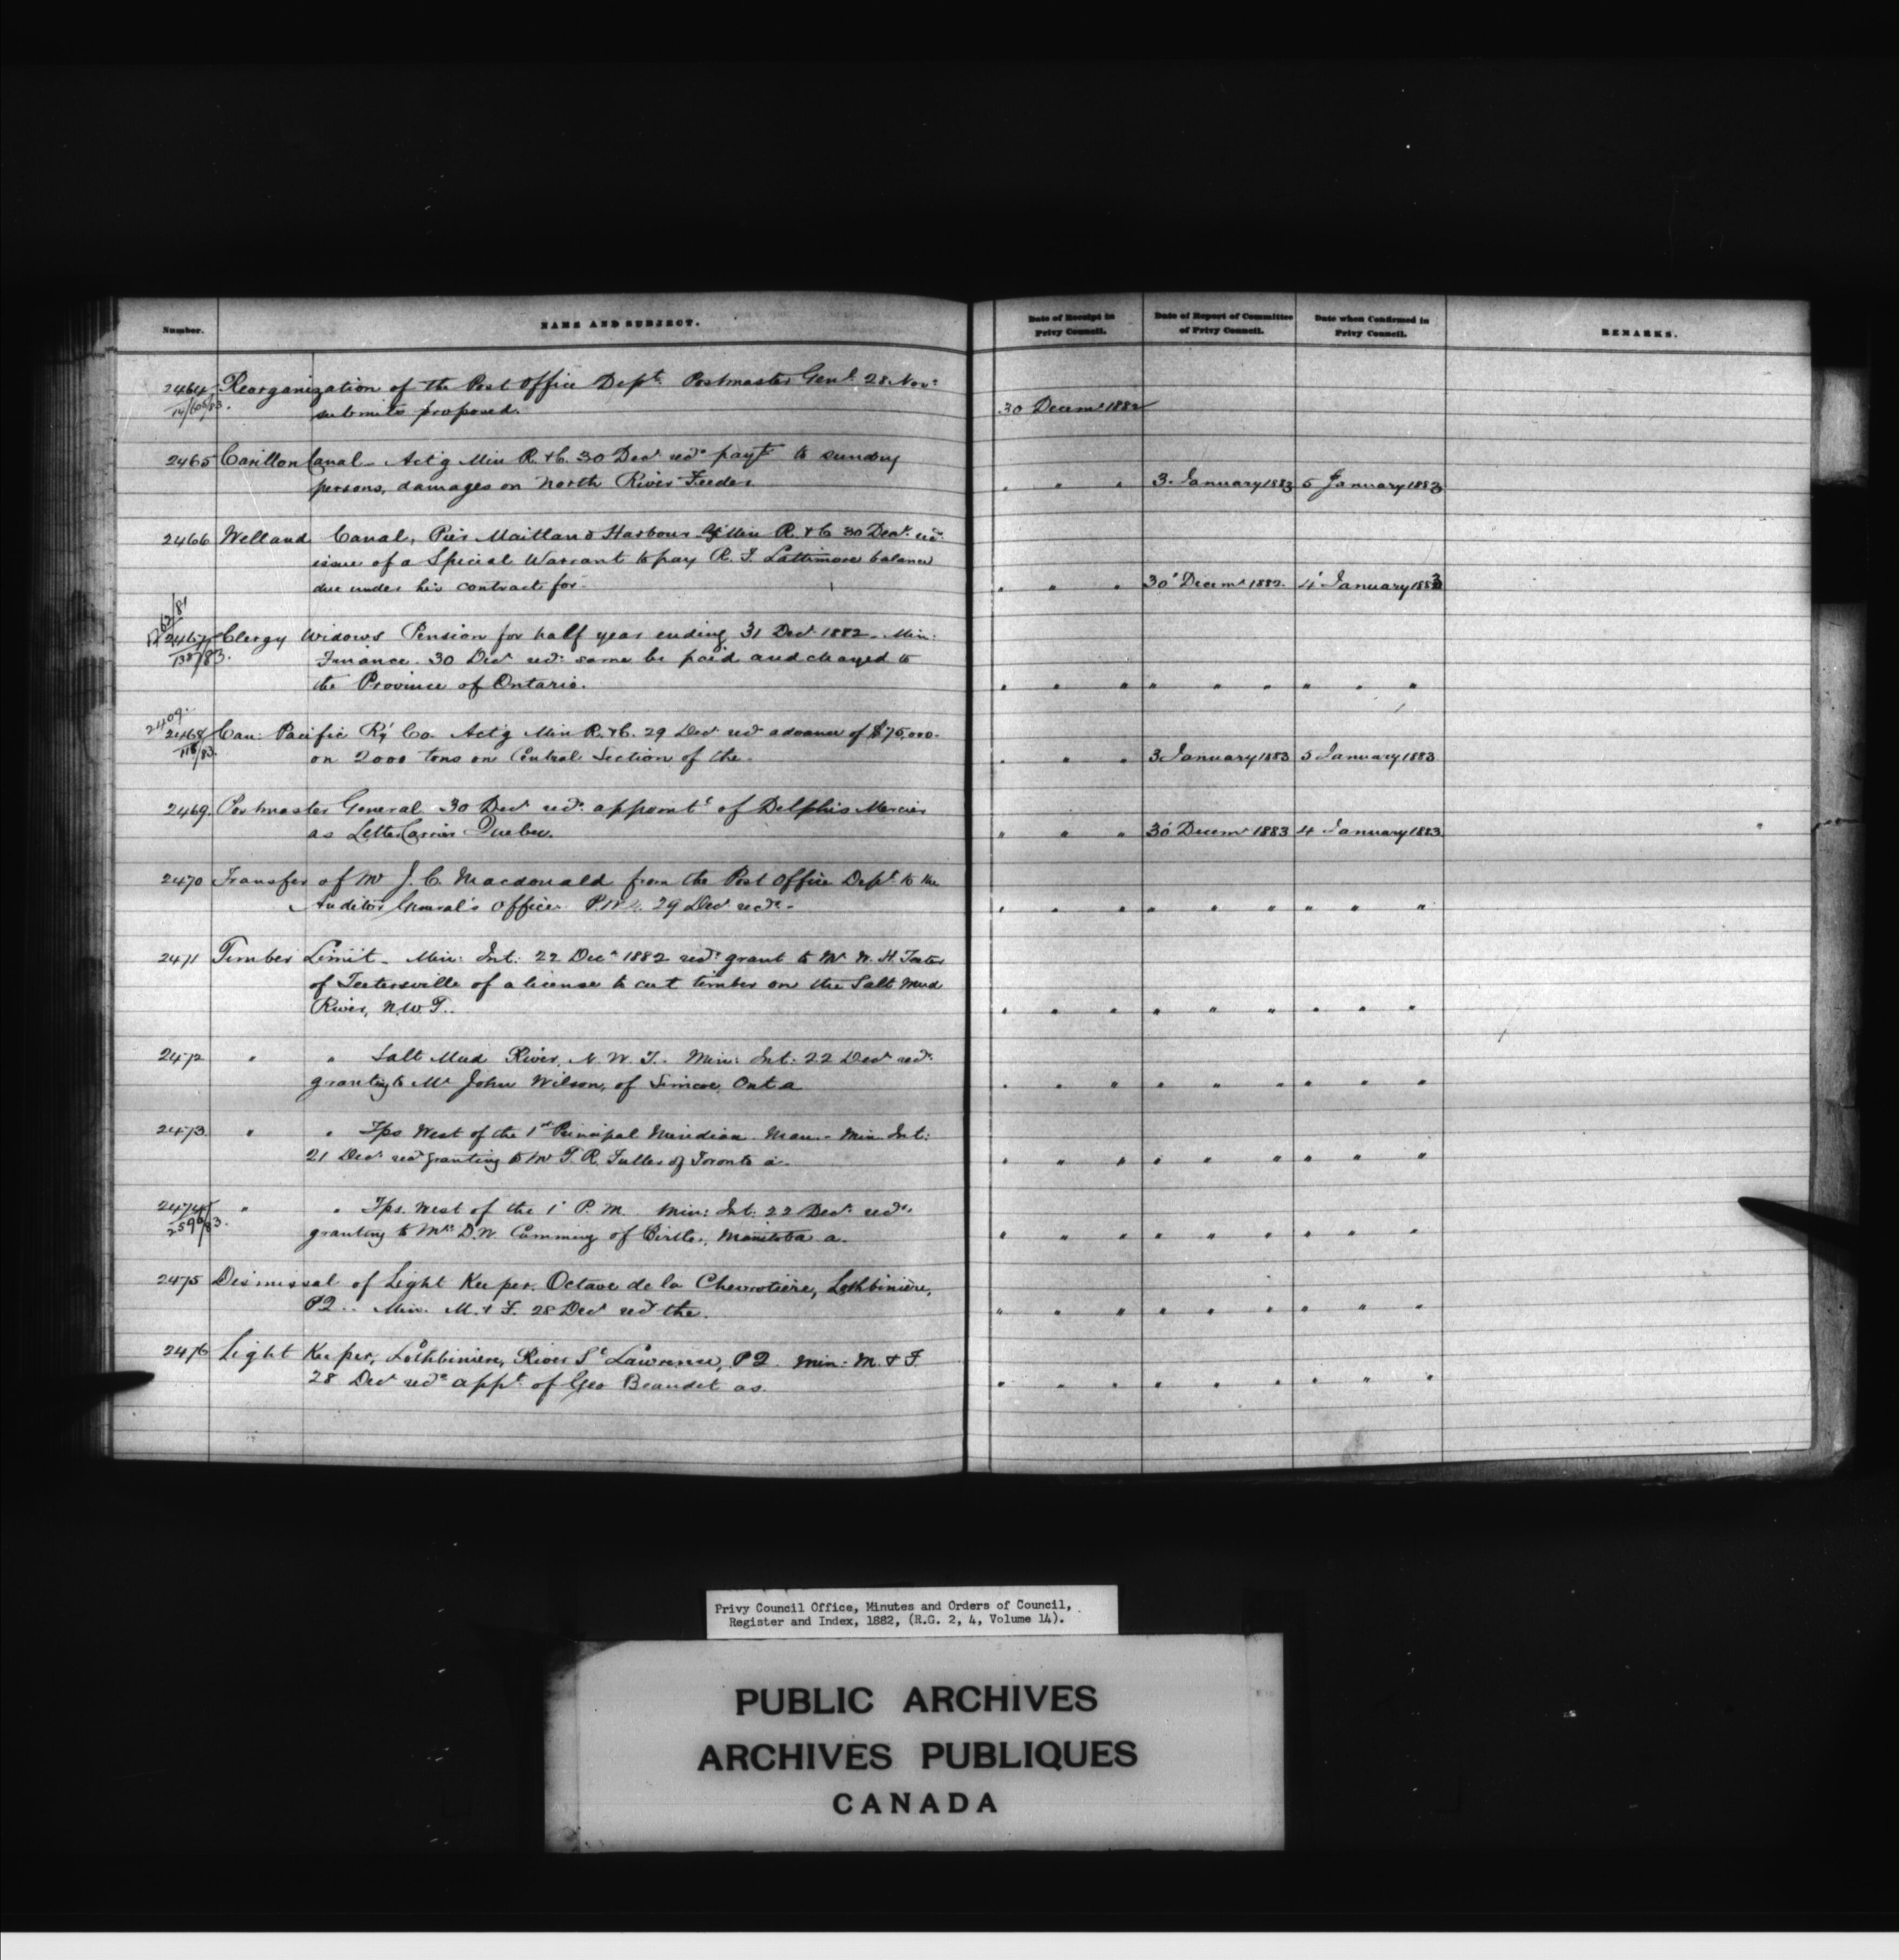 Number. NAME AND SUBJECT. Date of Receipt in Privy Council. Date of Report of Committee of Privy Council. Date when Confirmed in Privy Council. REMARKS.
2464 Reorganization of the Post Office Dept. Postmaster Genl. 28 Novr.
14/605/83. submits proposed. 30 Decemr 1882
2465 Carillon Canal - Act'g Min R. & C. 30 Decr recds payt to sundry
persons, damages on North River Feeder " " " 3 January 1883 5 January 1883
2466 Welland Canal, Pier Maitland Harbour Ag Min R & C 30 Decr recds
issue of a Special Warrant to pay R. F. Lattimore balance
due under his contract for " " " 30 Decemr 1882. 4 January 1883
2467 Clergy Widows Pension for half year ending 31 Decr 1882. Min:
Finance 30 Decr recds same be paid and charged to
the Province of Ontario. " " " " " " " " "
2409.
2468 Can: Pacific Ry Co. Act'g Min R. & C. 29 Decr recds advance of $75,000.
118/83. on 2000 tons on Central Section of the. " " " 3 January 1883 5 January 1883
2469. Postmaster General 30 Decr recds appointt of Delphis Mercier
as Letter Carrier Quebec. " " " 30 Decemr 1883 4 January 1883
2470 Transfer of Mr J. C. Macdonald from the Post Office Dept to the
Auditor General's Office 29 Decr recds - " " " " " " " " "
2471 Timber Limit - Min: Int: 22 Decr 1882 recds grant to Mr
of Teetersville of a license to cut timber on the Salt Mud
River, N.W.T. " " " " " " " " "
2472 " " Salt Mud River, N.W.T. Min: Int: 22 Decr recds
granting to Mr John Wilson, of Simcoe Ont a " " " " " " " " "
2473 " " Tps West of the 1st Principal Meridian Man. - Min Int:
21 Decr recds granting to Mr T. R. Fuller of Toronto a. " " " " " " " " "
2474 " " Tps. West of the 1 P. M. Min: Int: 22 Decr recds
2596/83. granting to Mr D. W. Cumming of Birtle, Manitoba a. " " " " " " " " "
2475 Dismissal of Light Keeper. Octave de la Chevrotière, Lothbinière,
P2.. Min. M. & F. 28 Decr recds the. " " " " " " " " "
2476 Light Keeper, Lothbiniere, River St Lawrence, P2. Min: M. & F.
28 Decr recds appt of Geo Beaudet as. " " " " " " " " "
Privy Council Office, Minutes and Orders of Council,
Register and Index, 1882, (R.G. 2, 4, Volume 14).
PUBLIC ARCHIVES
ARCHIVES PUBLIQUES
CANADA